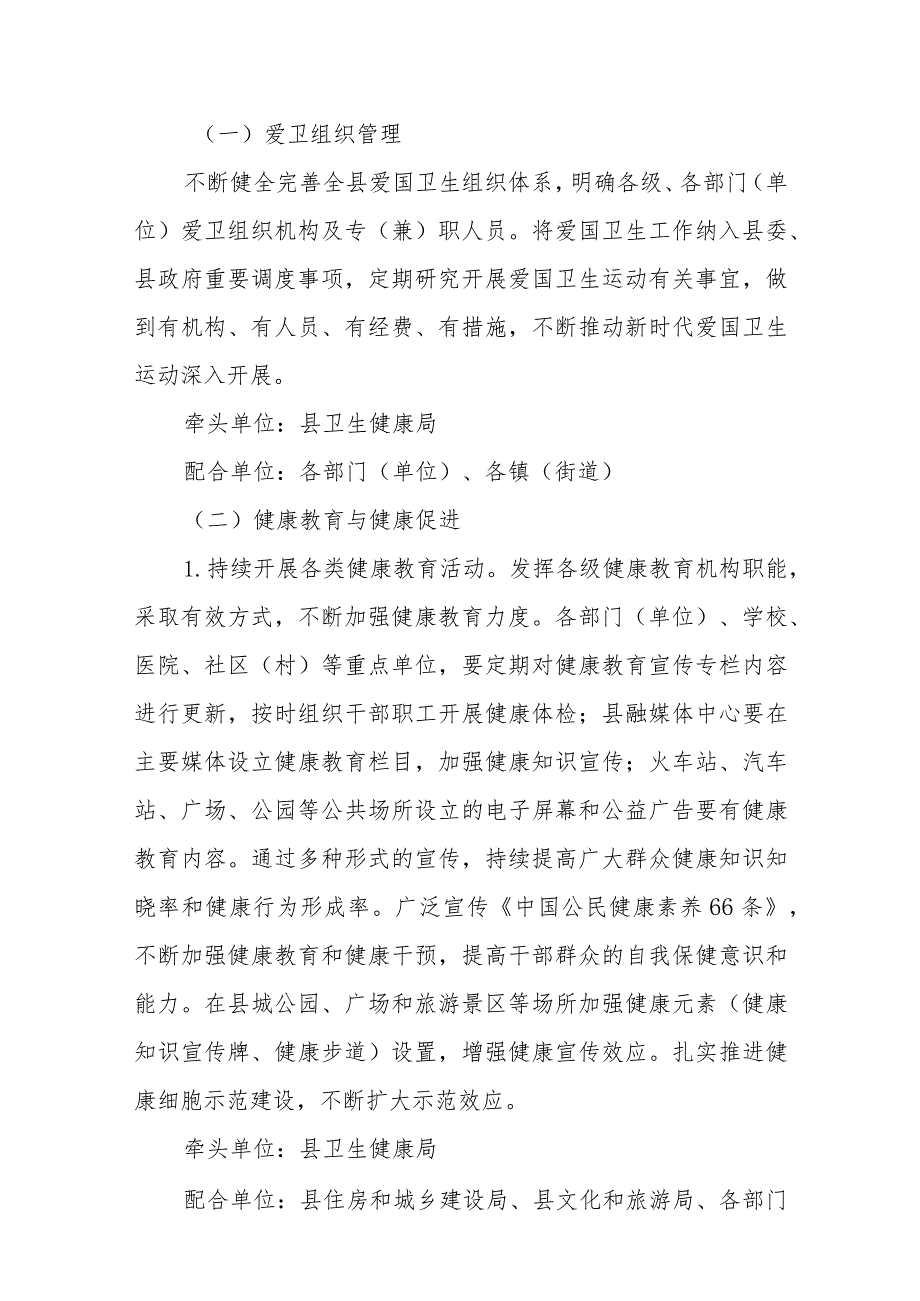 （一）爱卫组织管理
不断健全完善全县爱国卫生组织体系，明确各级、各部门（单
位）爱卫组织机构及专（兼）职人员。将爱国卫生工作纳入县委、
县政府重要调度事项，定期研究开展爱国卫生运动有关事宜，做
到有机构、有人员、有经费、有措施，不断推动新时代爱国卫生
运动深入开展。
牵头单位：县卫生健康局
配合单位：各部门（单位）、各镇（街道）
（二）健康教育与健康促进
1.持续开展各类健康教育活动。发挥各级健康教育机构职能，
采取有效方式，不断加强健康教育力度。各部门（单位）、学校、
医院、社区（村）等重点单位，要定期对健康教育宣传专栏内容
进行更新，按时组织干部职工开展健康体检；县融媒体中心要在
主要媒体设立健康教育栏目，加强健康知识宣传；火车站、汽车
站、广场、公园等公共场所设立的电子屏幕和公益广告要有健康
教育内容。通过多种形式的宣传，持续提高广大群众健康知识知
晓率和健康行为形成率。广泛宣传《中国公民健康素养66条》，
不断加强健康教育和健康干预，提高干部群众的自我保健意识和
能力。在县城公园、广场和旅游景区等场所加强健康元素（健康
知识宣传牌、健康步道）设置，增强健康宣传效应。扎实推进健
康细胞示范建设，不断扩大示范效应。
牵头单位：县卫生健康局
配合单位：县住房和城乡建设局、县文化和旅游局、各部门